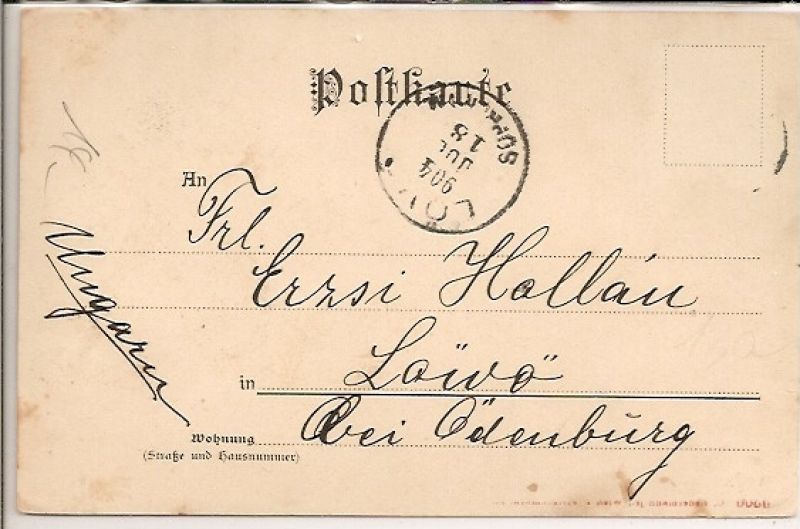 Postkarte
SOPRON
18
JUL
904
LÖV
An
Frl.
Erzsi Hollán
in Löwö
bei Ödenburg
Wohnung
(Straße und Hausnummer)
Ungarn